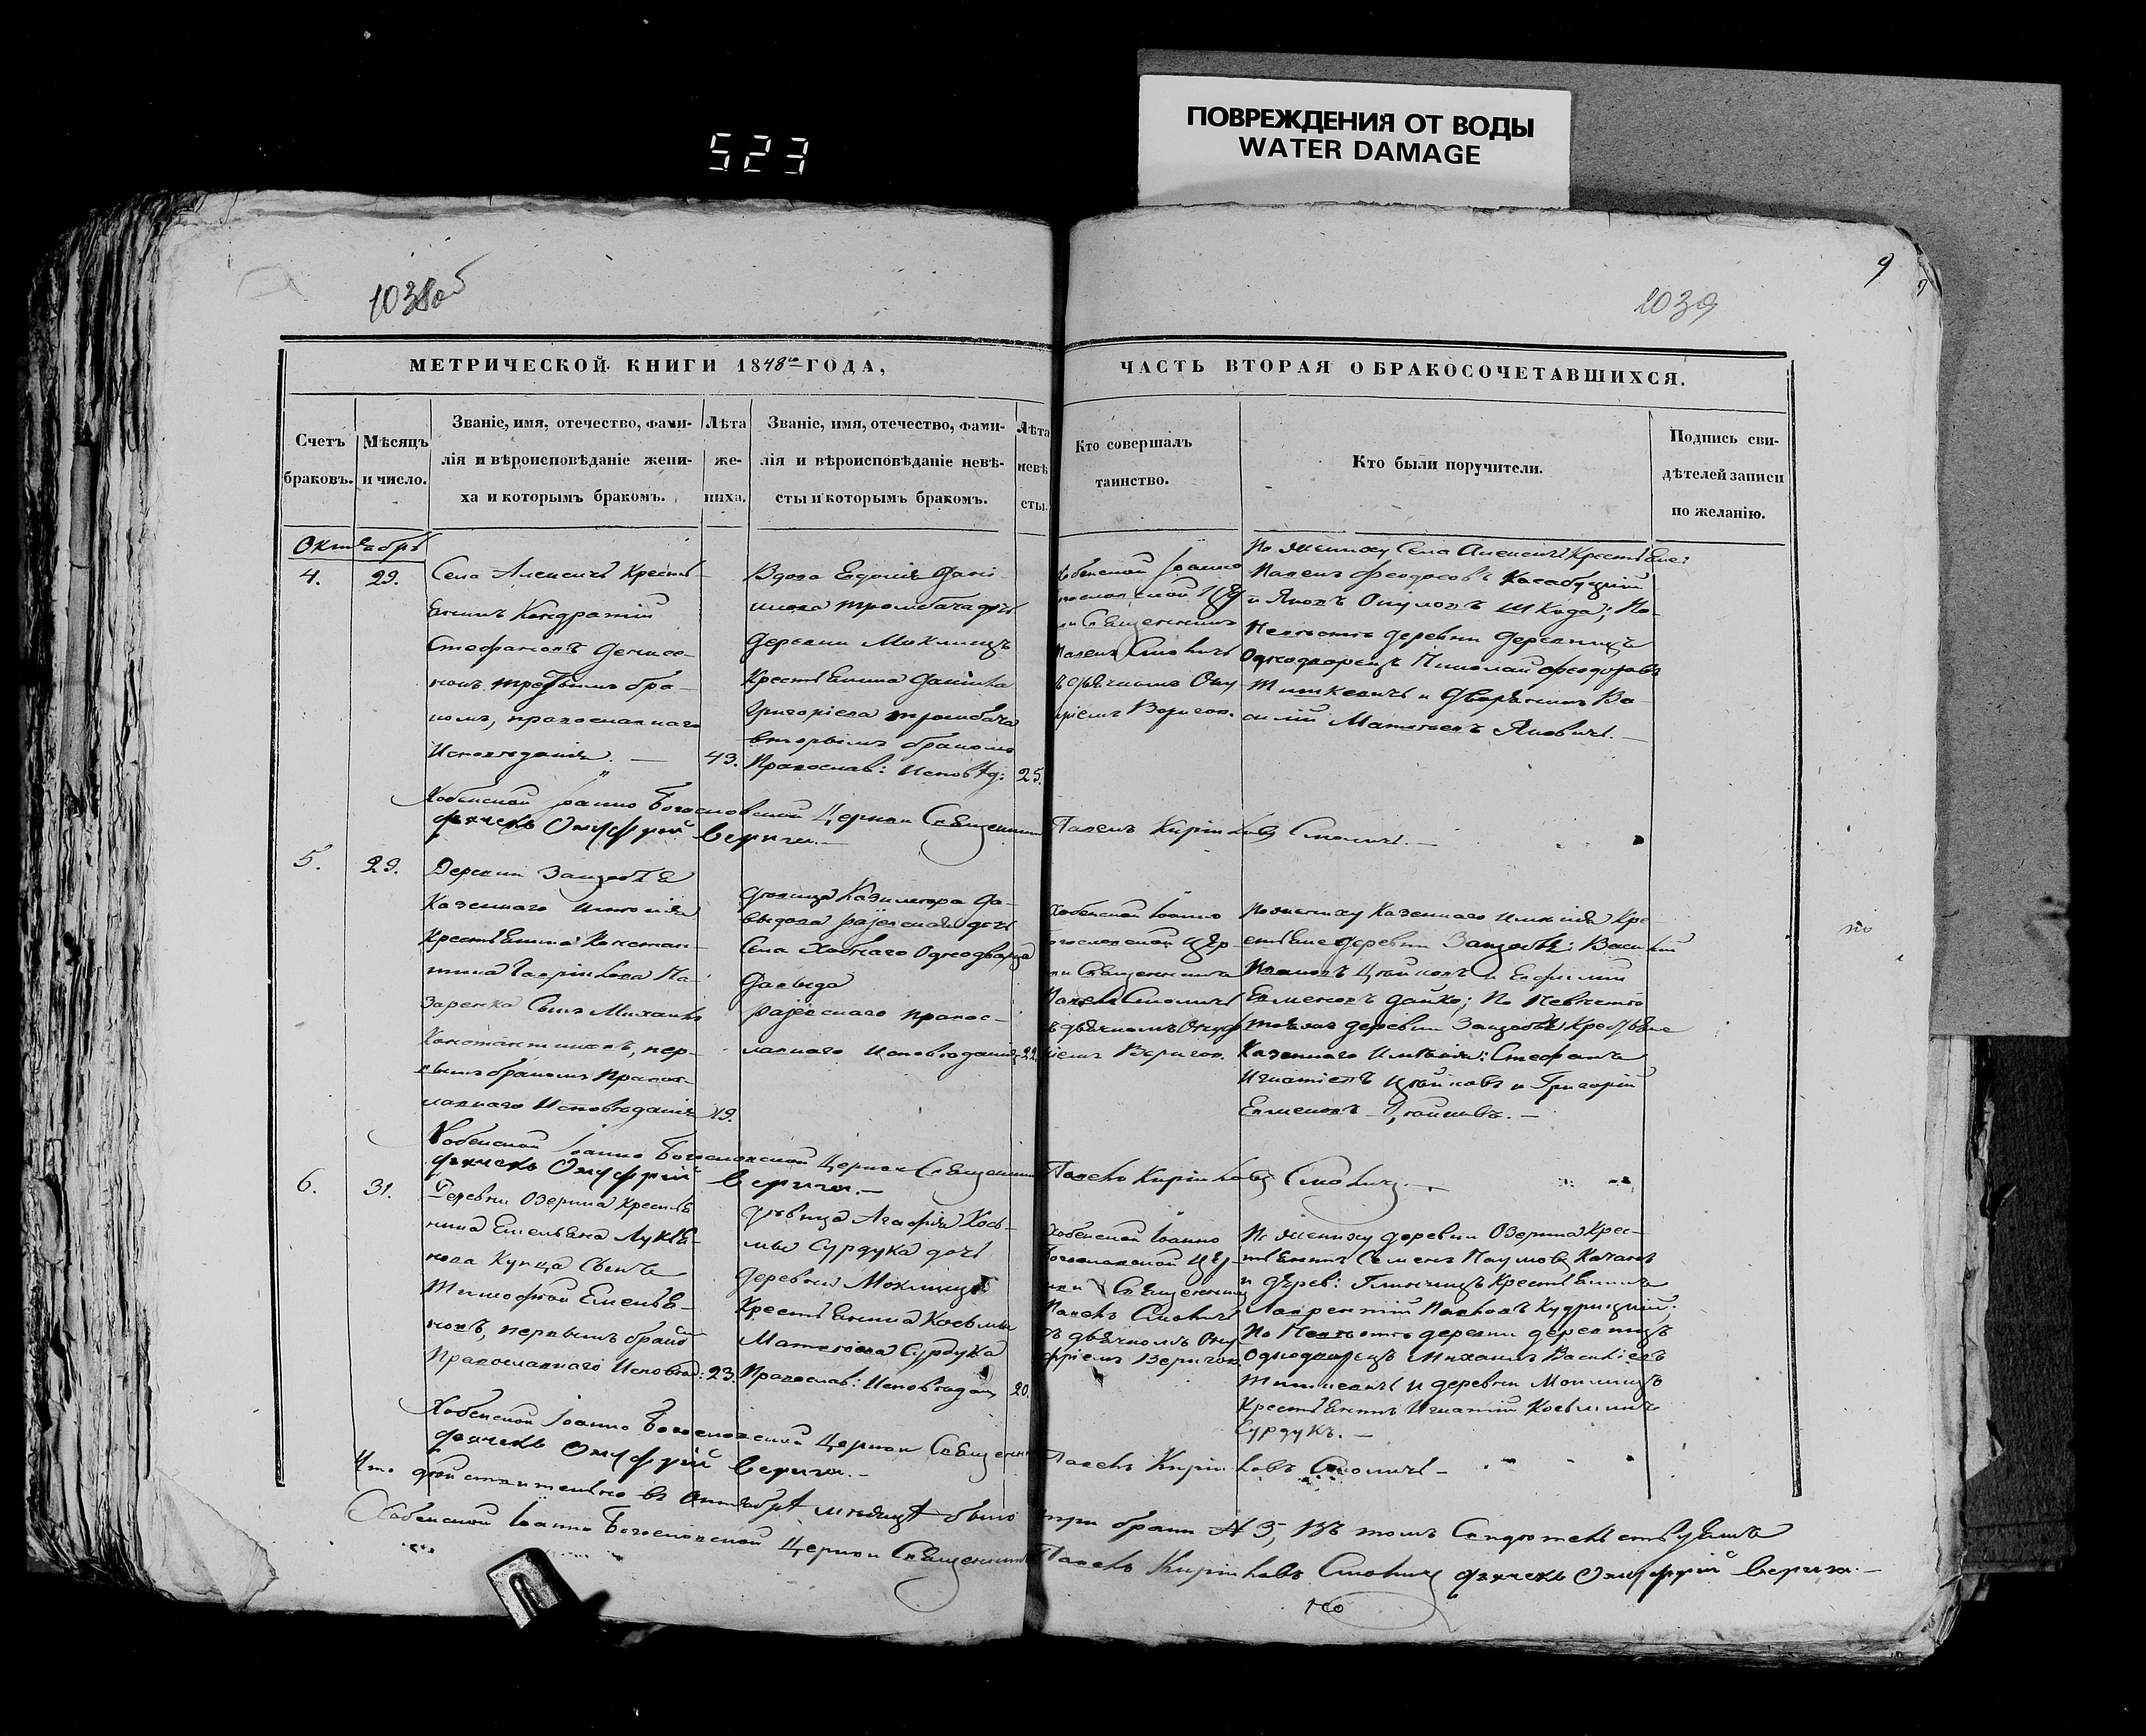 ПОВРЕЖДЕНИЯ ОТ ВОДЫ
WATER DAMAGE
523
1038об
1039
9
МЕТРИЧЕСКОЙ КНИГИ 1848го ГОДА,
ЧАСТЬ ВТОРАЯ О БРАКОСОЧЕТАВШИХСЯ.
Счетъ
браковъ.
Мѣсяцъ
и число.
Званіе, имя, отечество, фами-
лія и вѣроисповѣданіе жени-
ха и которымъ бракомъ.
Лѣта
же-
ниха.
Званіе, имя, отечество, фами-
лія и вѣроисповѣданіе невѣ-
сты и которымъ бракомъ.
Лѣта
невѣ
сты.
Кто совершалъ
таинство.
Кто были поручители.
Подпись сви-
дѣтелей записи
по желанію.
Октябрь
4.
29.
Села Алексичъ Кресть-
янинъ Кондратій
Стефановъ Денисо-
вымъ бра-
комъ, православнаго
Исповѣданія. —
43.
Вдова Евдокія Дані-
илова дочь
деревни Моклищъ
Крестьянина Даніила
Григоріева
вторымъ бракомъ
Православ: Исповѣд:
25.
священникъ
Павелъ Смоличъ
съ дьячкомъ Онуф
ріемъ Веригою.
По жениху Села Алексичъ Крестьяне:
Павелъ Феодосовъ
и Яковъ Шкода; По
Невѣстѣ деревни
Однодворецъ Николай Феодоровъ
Тишкевичъ и Дворянинъ Ва-
силій Матвѣевъ Яновичъ. —
Хобенской Іоанно Богословской Церкви Священникъ Павелъ Кириловъ Смоличъ. —
дьячекъ Онуфрій Верига. —
5.
29.
Деревни
Казеннаго имѣнія
Крестьянина Констан-
тина Гаврилова На-
заренка Сынъ Михаилъ
Константиновъ, пер-
вымъ бракомъ Правос-
лавнаго Исповѣданія
19.
дѣвица Казимира Да-
выдова дочь
Села Хобнаго Однодворца
Давыда
правос-
лавнаго исповѣданія
22.
Хобенской Іоанно
Богословской Цер
кви Священникъ
Павелъ Смоличъ
съ дьячкомъ Онуф
ріемъ Веригою.
По жениху Казеннаго имѣнія Кре-
стьяне деревни Василій
Ивановъ и Евфимій
По Невѣстѣ
деревни Крестьяне
Казеннаго Имѣнія: Стефанъ
Игнатіевъ и Григорій
Хобенской Іоанно Богословской Церкви Священникъ Павелъ Кириловъ Смоличъ. —
дьячекъ Онуфрій Верига. —
6.
31.
Деревни Озерина Крестья
нина Емельяна Лукья-
нова Купца Сынъ
Тимофей Емелья-
новъ, первымъ бракомъ
Православнаго Исповѣд:
23.
дѣвица Агафія Кось-
мы Сурдука дочь
деревни Моклищъ
Крестьянина Косьмы
Матвѣева Сурдука
Православ: Исповѣдан
20.
Хобенской Іоанно
Богословской Цер-
кви Священникъ
Павелъ Смоличъ
съ дьячкомъ Ону
фріемъ Веригою.
По жениху деревни Озерина Крес-
тьянинъ Семенъ Наумовъ
и дерев: Крестьянинъ
Лаврентій Павловъ Кудрицкій;
По Невѣстѣ деревни
Однодворецъ Михаилъ Васильевъ
Тишкевичъ и деревни Моклищъ
Крестьянинъ Игнатій Косьминъ
Сурдукъ. —
Хобенской Іоанно Богословской Церкви Священникъ Павелъ Кириловъ Смоличъ —
дьячекъ Онуфрій Верига. —
Что дѣйствительно въ Октябрѣ мѣсяцѣ было три браки № 3, въ томъ Свидѣтельствуемъ
Хобенской Іоанно Богословской Церкви Священникъ Павелъ Кириловъ Смоличъ дьячекъ Онуфрій Верига. —